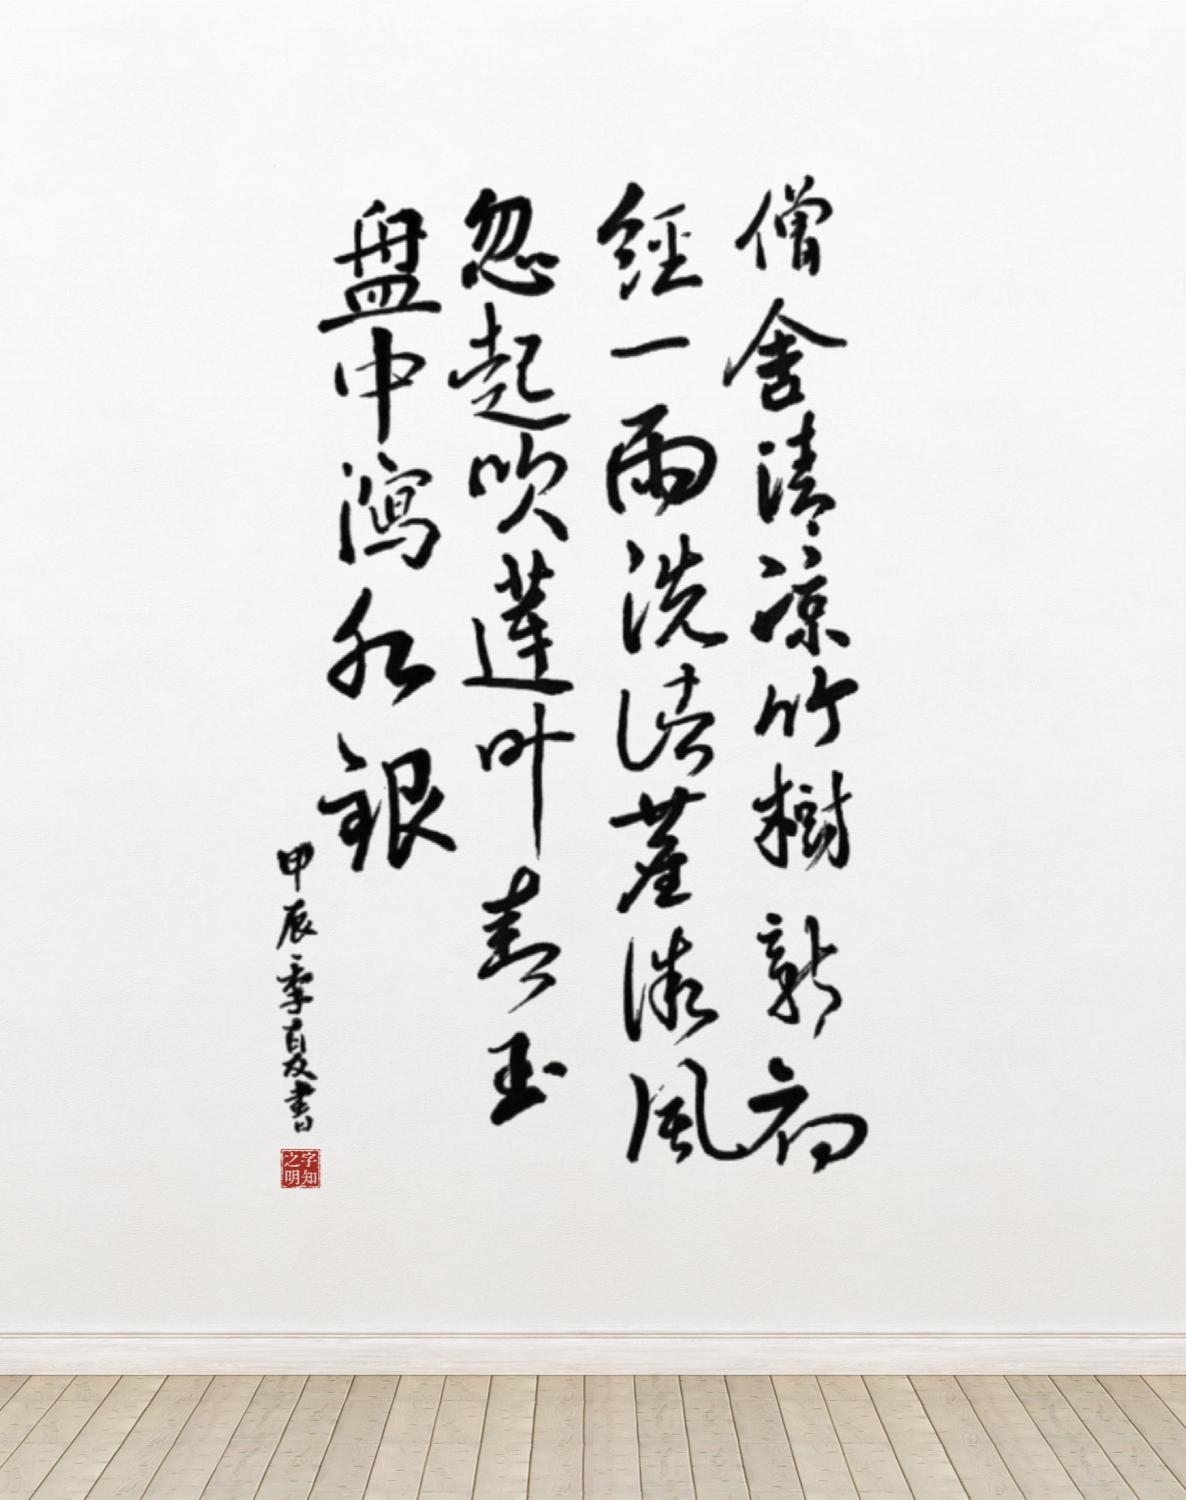 僧舍清涼竹樹新初
經一雨洗諸塵微風
忽起吹蓮叶青玉
盘中瀉水銀
甲辰季夏書
字知之明